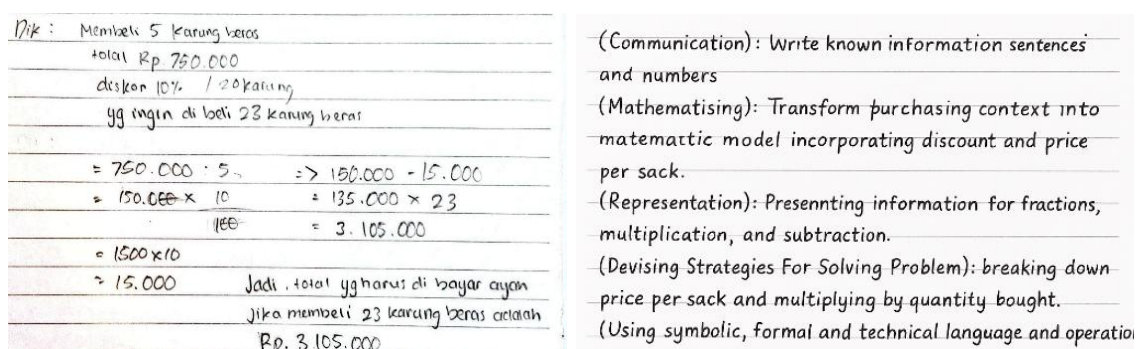 Dik : Membeli 5 karung beras
total Rp. 750.000
diskon 10% / 20 karung
yg ingin di beli 23 karung beras
= 750.000 : 5
= 150.000 × 10
100
= 1500 × 10
= 15.000
=> 150.000 - 15.000
= 135.000 × 23
= 3.105.000
Jadi, total yg harus di bayar ayan
jika membeli 23 karung beras adalah
Rp. 3.105.000
(Communication): Write known information sentences
and numbers
(Mathematising): Transform purchasing context into
matemattic model incorporating discount and price
per sack.
(Representation): Presennting information for fractions,
multiplication, and subtraction.
(Devising Strategies For Solving Problem): breaking down
price per sack and multiplying by quantity bought.
(Using symbolic, formal and technical language and operatio